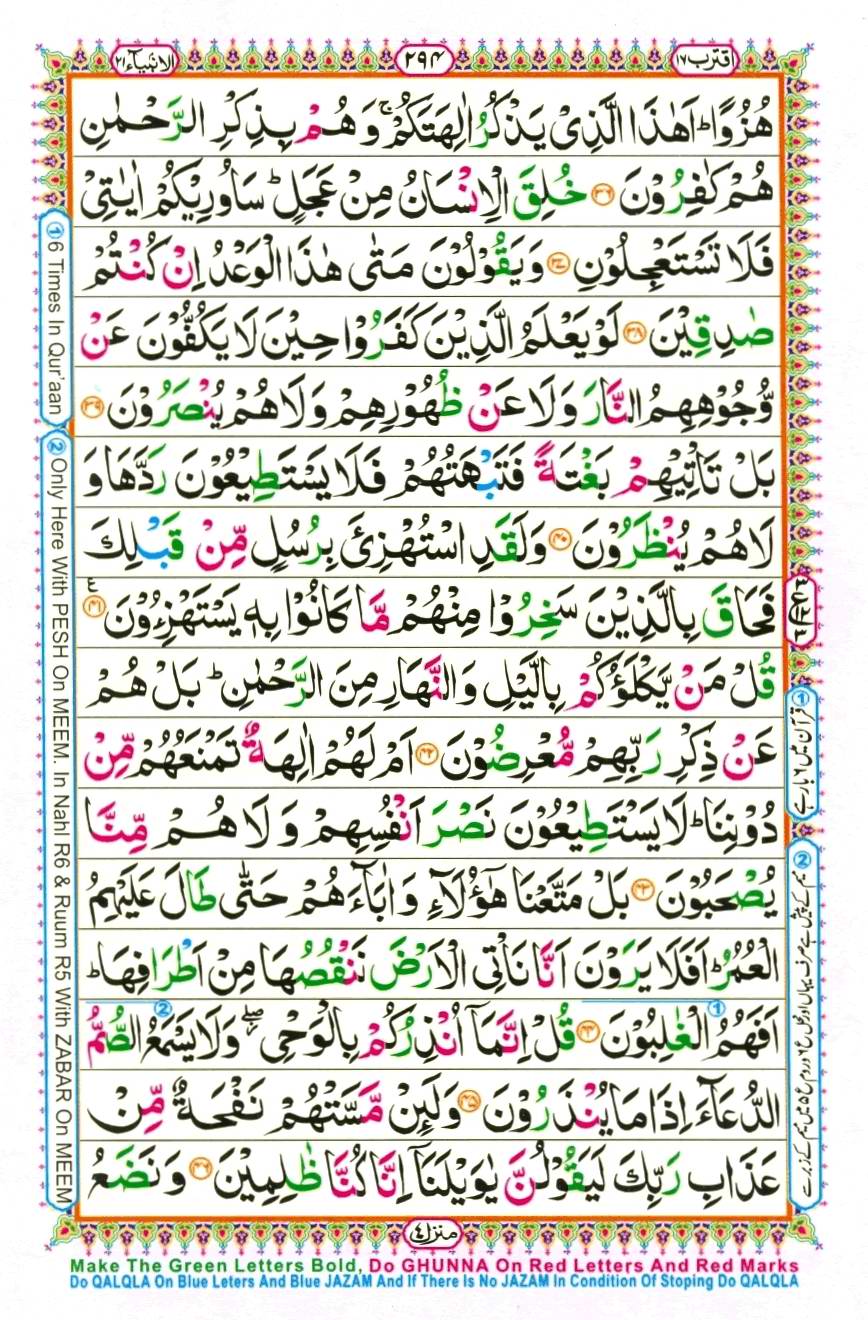 الانبیاء ۲۱
۲۹۴
اقترب ۱۷
هُزُوًا ؕ اَهٰذَا الَّذِىْ يَذْكُرُ اٰلِهَتَكُمْ ۚ وَهُمْ بِذِكْرِ الرَّحْمٰنِ
هُمْ كٰفِرُوْنَ ۳۶ خُلِقَ الْاِنْسَانُ مِنْ عَجَلٍ ؕ سَاُورِيْكُمْ اٰيٰتِىْ
فَلَا تَسْتَعْجِلُوْنِ ۳۷ وَيَقُوْلُوْنَ مَتٰى هٰذَا الْوَعْدُ اِنْ كُنْتُمْ
صٰدِقِيْنَ ۳۸ لَوْ يَعْلَمُ الَّذِيْنَ كَفَرُوْا حِيْنَ لَا يَكُفُّوْنَ عَنْ
وُّجُوْهِهِمُ النَّارَ وَلَا عَنْ ظُهُوْرِهِمْ وَلَا هُمْ يُنْصَرُوْنَ ۳۹
بَلْ تَاْتِيْهِمْ بَغْتَةً فَتَبْهَتُهُمْ فَلَا يَسْتَطِيْعُوْنَ رَدَّهَا وَ
لَا هُمْ يُنْظَرُوْنَ ۴۰ وَلَقَدِ اسْتُهْزِئَ بِرُسُلٍ مِّنْ قَبْلِكَ
فَحَاقَ بِالَّذِيْنَ سَخِرُوْا مِنْهُمْ مَّا كَانُوْا بِهٖ يَسْتَهْزِءُوْنَ ۴۱
قُلْ مَنْ يَّكْلَؤُكُمْ بِالَّيْلِ وَالنَّهَارِ مِنَ الرَّحْمٰنِ ؕ بَلْ هُمْ
عَنْ ذِكْرِ رَبِّهِمْ مُّعْرِضُوْنَ ۴۲ اَمْ لَهُمْ اٰلِهَةٌ تَمْنَعُهُمْ مِّنْ
دُوْنِنَا ؕ لَا يَسْتَطِيْعُوْنَ نَصْرَ اَنْفُسِهِمْ وَلَا هُمْ مِّنَّا
يُصْحَبُوْنَ ۴۳ بَلْ مَتَّعْنَا هٰٓؤُلَآءِ وَاٰبَآءَهُمْ حَتّٰى طَالَ عَلَيْهِمُ
الْعُمُرُ ؕ اَفَلَا يَرَوْنَ اَنَّا نَاْتِى الْاَرْضَ نَنْقُصُهَا مِنْ اَطْرَافِهَا ؕ
اَفَهُمُ الْغٰلِبُوْنَ ۴۴ قُلْ اِنَّمَآ اُنْذِرُكُمْ بِالْوَحْىِ ۖ وَلَا يَسْمَعُ الصُّمُّ
الدُّعَآءَ اِذَا مَا يُنْذَرُوْنَ ۴۵ وَلَئِنْ مَّسَّتْهُمْ نَفْحَةٌ مِّنْ
عَذَابِ رَبِّكَ لَيَقُوْلُنَّ يٰوَيْلَنَآ اِنَّا كُنَّا ظٰلِمِيْنَ ۴۶ وَنَضَعُ
منزل ۴
① 6 Times In Qur'aan
② Only Here With PESH On MEEM. In Nahl R6 & Ruum R5 With ZABAR On MEEM
① قرآن میں ۶ بار ہے
Make The Green Letters Bold, Do GHUNNA On Red Letters And Red Marks
Do QALQLA On Blue Leters And Blue JAZAM And If There Is No JAZAM In Condition Of Stoping Do QALQLA